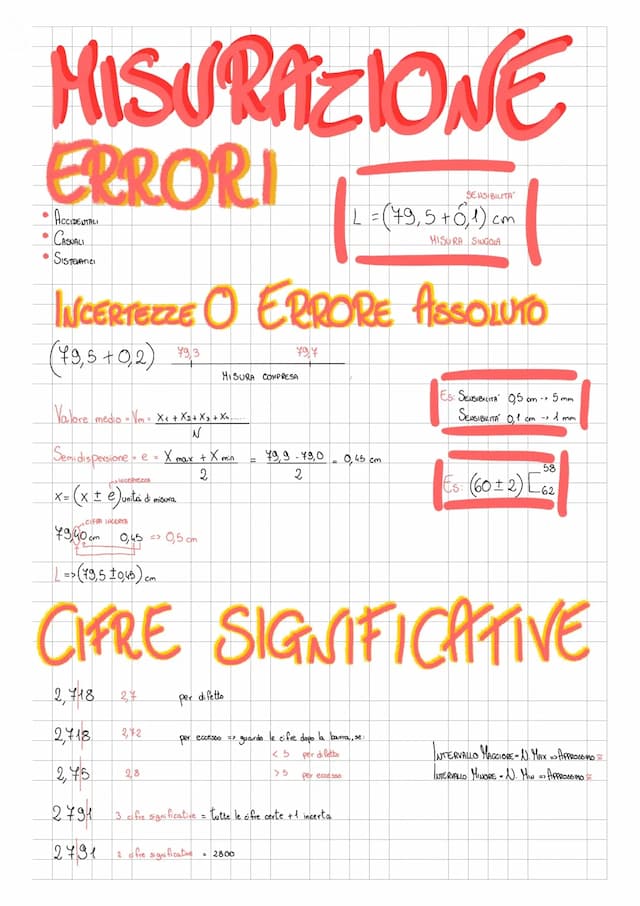 MISURAZIONE
ERRORI
• ACCIDENTALI
• CASUALI
• SISTEMATICI
SENSIBILITA'
L = (79,5 + 0,1) cm
MISURA SINGOLA
INCERTEZZE O ERRORE ASSOLUTO
(79,5 + 0,2) 79,3 79,7
MISURA COMPRESA
Es: SENSIBILITA' 0,5 cm -> 5 mm
SENSIBILITA' 0,1 cm -> 1 mm
Valore medio = Vm = X1 + X2 + X3 + X4...... / N
Semidispersione = e = X max + X min / 2 = 79,9 - 79,0 / 2 = 0,45 cm
Es: (60 ± 2) [ 58
62
INCERTEZZA
x = (x ± e) unità di misura
CIFRA INCERTA
79,40 cm 0,45 => 0,5 cm
L => (79,5 ± 0,45) cm
CIFRE SIGNIFICATIVE
2,7|18 2,7 per difetto
2,71|8 2,72 per eccesso => guardo le cifre dopo la barra, se:
< 5 per difetto
2,7|5 2,8 > 5 per eccesso
INTERVALLO MAGGIORE = N. MAX => APPROSSIMO ≅
INTERVALLO MINORE = N. MIN => APPROSSIMO ≅
2791| 3 cifre significative = tutte le cifre certe + 1 incerta
27|91 2 cifre significative = 2800